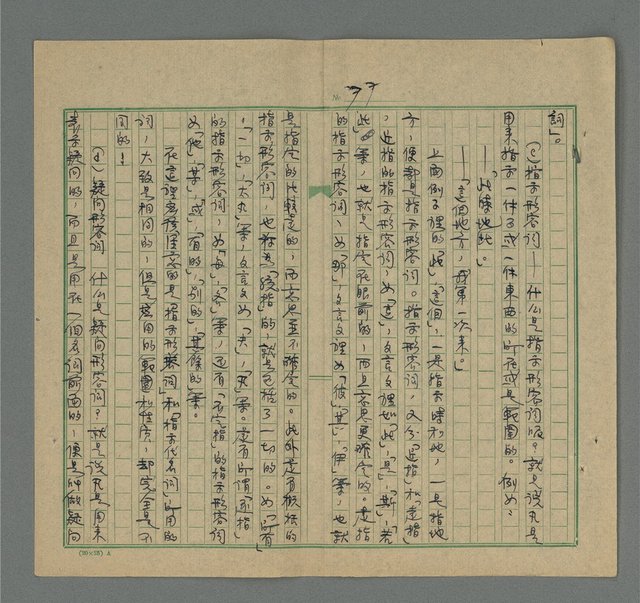 No. 77
詞」。
(c)指示形容詞——什么是指示形容詞呢?就是說凡是
用來指示一件子或一件東西的所在或是範圍的。例如:
——「此時此地」。
——「這個地方,我第一次來。」
上面例子裡的「此」「這個」,一是指示時和地,一是指地
方,便都是指示形容詞。指示形容詞,又分「近指」和「遠指」
,近指的指示形容詞,如「這」,文言文裡如「此」,「是」,「斯」,「若
此」等,也就是指定在眼前的,而且意思更確定的。遠指
的指示形容詞,如「那」,文言文裡如「彼」「其」,「伊」等,也就
是指定的比較遠的,而意思並不確定的。此外還有概括的
指示形容詞,也稱為「統指」的,就是包括了一切的。如「所有
」「一切」,「大凡」等,文言文如「夫」,「凡」等。還有所謂「逐指」
的指示形容詞,如「每」,「各」等,還有「不定指」的指示形容詞
如「他」,「某」,「或」,「有的」,「別的」,「其餘的」等。
在這裡要注意的是「指示形容詞」和「指示代名詞」,所用的
詞,大致是相同的,但是應用的範圍和性質,却完全是不
同的!
(d)疑問形容詞 什么是疑問形容詞?就是說凡是用來
表示疑問的,而且是用在一個名詞前面的,便是叫做疑問
(20×25) A